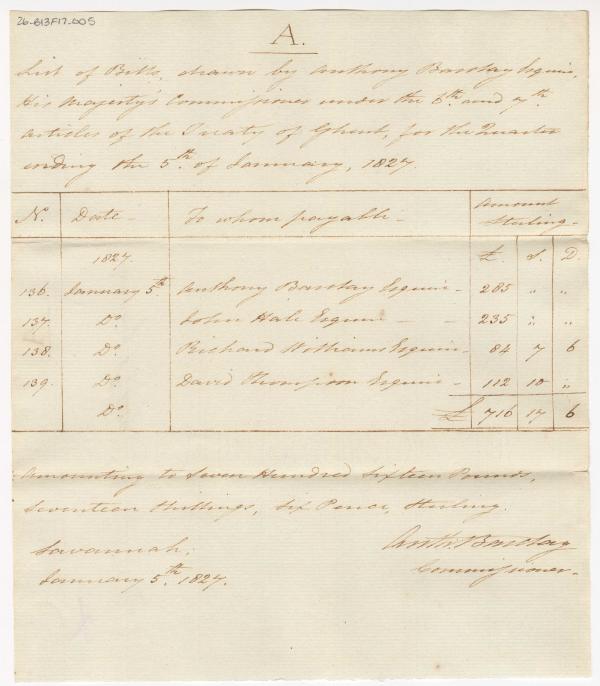 26-B13F17-005
A.
List of Bills, drawn by Anthony Barclay Esquire,
His Majesty's Commissioner under the 6th and 7th
articles of the Treaty of Ghent, for the Quarter
ending the 5th of January, 1827.
No. Date To whom payable Amount Sterling
1827. £. S. D.
136. January 5th Anthony Barclay Esquire 285 " "
137. Do. John Hale Esquire 235 " "
138. Do. Richard Williams Esquire 84 7 6
139. Do. David Thompson Esquire 112 10 "
Do. £ 716 17 6
Amounting to Seven Hundred Sixteen Pounds,
Seventeen Shillings, Six Pence, Sterling.
Savannah, Anth. Barclay
January 5th 1827. Commissioner.